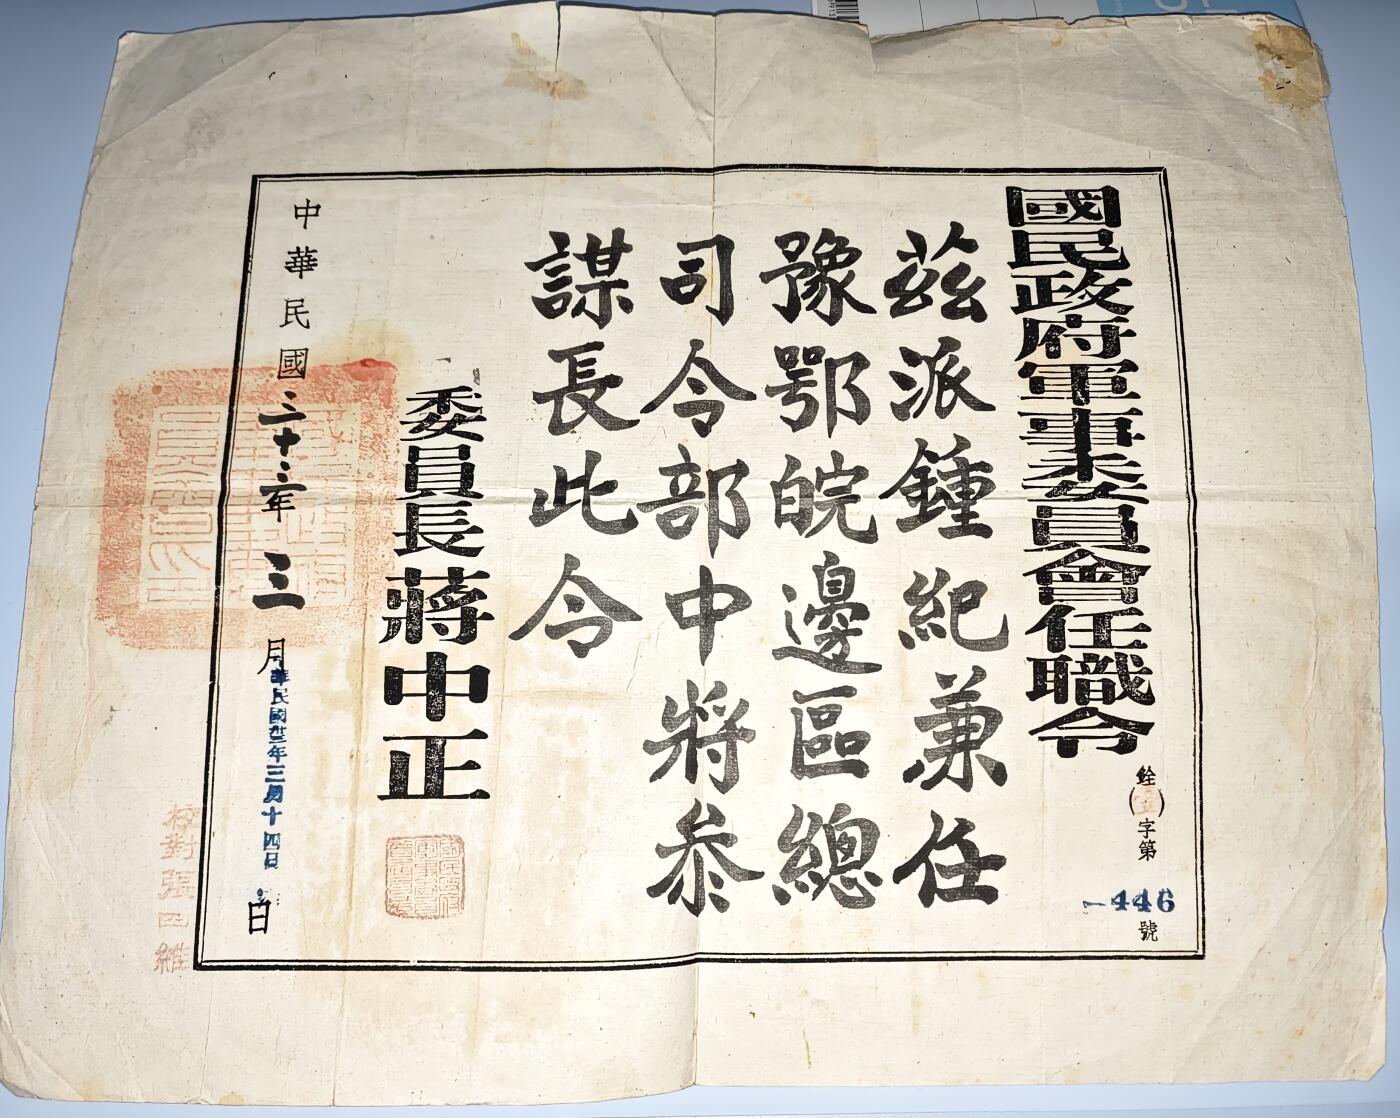 國民政府軍事委員會任職令
銓(壹)字第
446
號
茲派鍾紀兼任
豫鄂皖邊區總
司令部中將参
謀長此令
委員長蔣中正
中華民國三十三年三月
華民國卅三年三月十四日
日
校對張四維